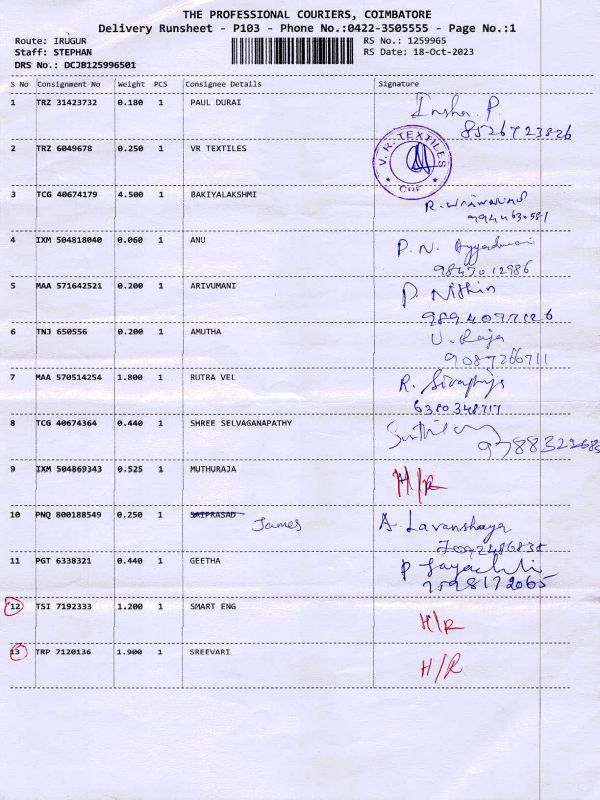 THE PROFESSIONAL COURIERS, COIMBATORE
Delivery Runsheet - P103 - Phone No.:0422-3505555 - Page No.:1
Route: IRUGUR RS No.: 1259965
Staff: STEPHAN RS Date: 18-Oct-2023
DRS No.: DCJB125996501
S No Consignment No Weight PCS Consignee Details Signature
1 TRZ 31423732 0.180 1 PAUL DURAI
8526723826
2 TRZ 6049678 0.250 1 VR TEXTILES V. R. TEXTILES CBE
3 TCG 40674179 4.500 1 BAKIYALAKSHMI
9944630581
4 IXM 504818040 0.060 1 ANU P. N.
9843012986
5 MAA 571642521 0.200 1 ARIVUMANI P. Nithin
9894097126
6 TNJ 650556 0.200 1 AMUTHA U. Raja
9087266711
7 MAA 570514254 1.800 1 RUTRA VEL R.
6380348717
8 TCG 40674364 0.440 1 SHREE SELVAGANAPATHY
9788322685
9 IXM 504869343 0.525 1 MUTHURAJA H/R
10 PNQ 800188549 0.250 1 SAIPRASAD James A. Lavanshaya
7092486838
11 PGT 6338321 0.440 1 GEETHA P
7598172065
12 TSI 7192333 1.200 1 SMART ENG H/R
13 TRP 7120136 1.900 1 SREEVARI H/R